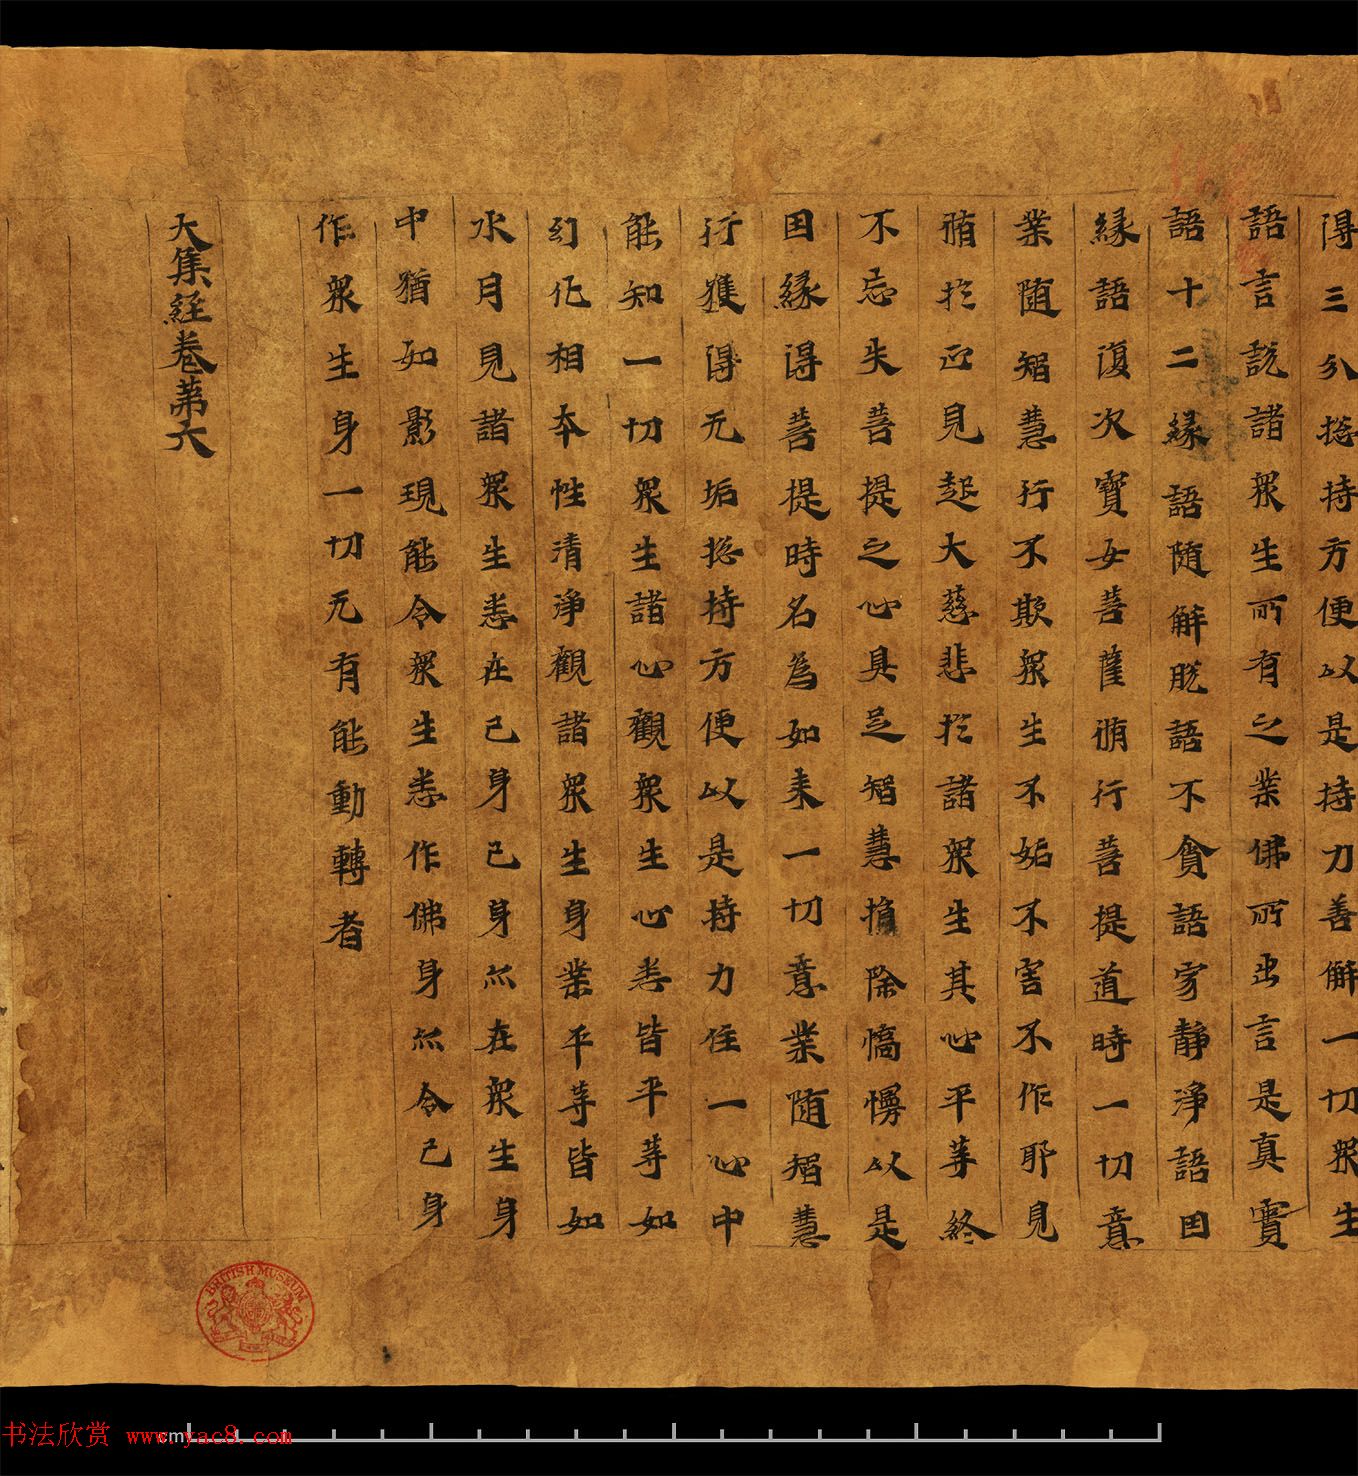 得三分揔持方便以是持力善解一切衆生
語言說諸衆生所有之業佛所出言是真實
語十二緣語隨解脫語不貪語寂靜淨語因
緣語復次寶女菩薩脩行菩提道時一切意
業隨智慧行不欺衆生不妬不害不作耶見
脩於正見起大慈悲於諸衆生其心平等終
不忘失菩提之心具足智慧摧除憍慢以是
因緣得菩提時名為如来一切意業隨智慧
行獲得无垢揔持方便以是持力住一心中
能知一切衆生諸心觀衆生心悉皆平等如
幻化相本性清淨觀諸衆生身業平等皆如
水月見諸衆生悉在己身己身亦在衆生身
中猶如影現能令衆生悉作佛身亦令己身
作衆生身一切无有能動轉者
大集經卷第六
BRITISH MUSEUM
书法欣赏 www.yac8.com
cm